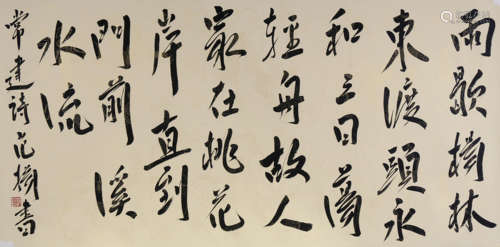 雨歇楊林
東渡頭永
和三日蕩
輕舟故人
家在桃花
岸直到
門前溪
水流
常建詩范揚書